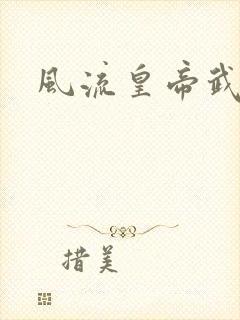 風流皇帝武
措美